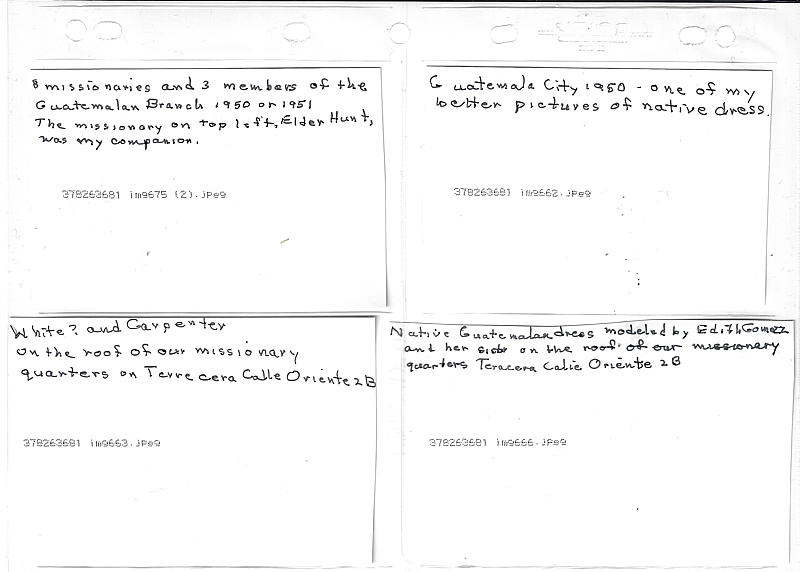 8 missionaries and 3 members of the
Guatemalan Branch 1950 or 1951
The missionary on top left, Elder Hunt,
was my companion.
378263681 im9675 (2).jpeg
Guatemala City 1950 - one of my
better pictures of native dress.
378263681 im9662.jpeg
White? and Carpenter
on the roof of our missionary
quarters on Terrecera Calle Oriente 2B
378263681 im9663.jpeg
Native Guatemalan dress modeled by Edith Gomezz
and her sistr on the roof of our missionery
quarters Teracera Calie Oriente 2B
378263681 im9666.jpeg